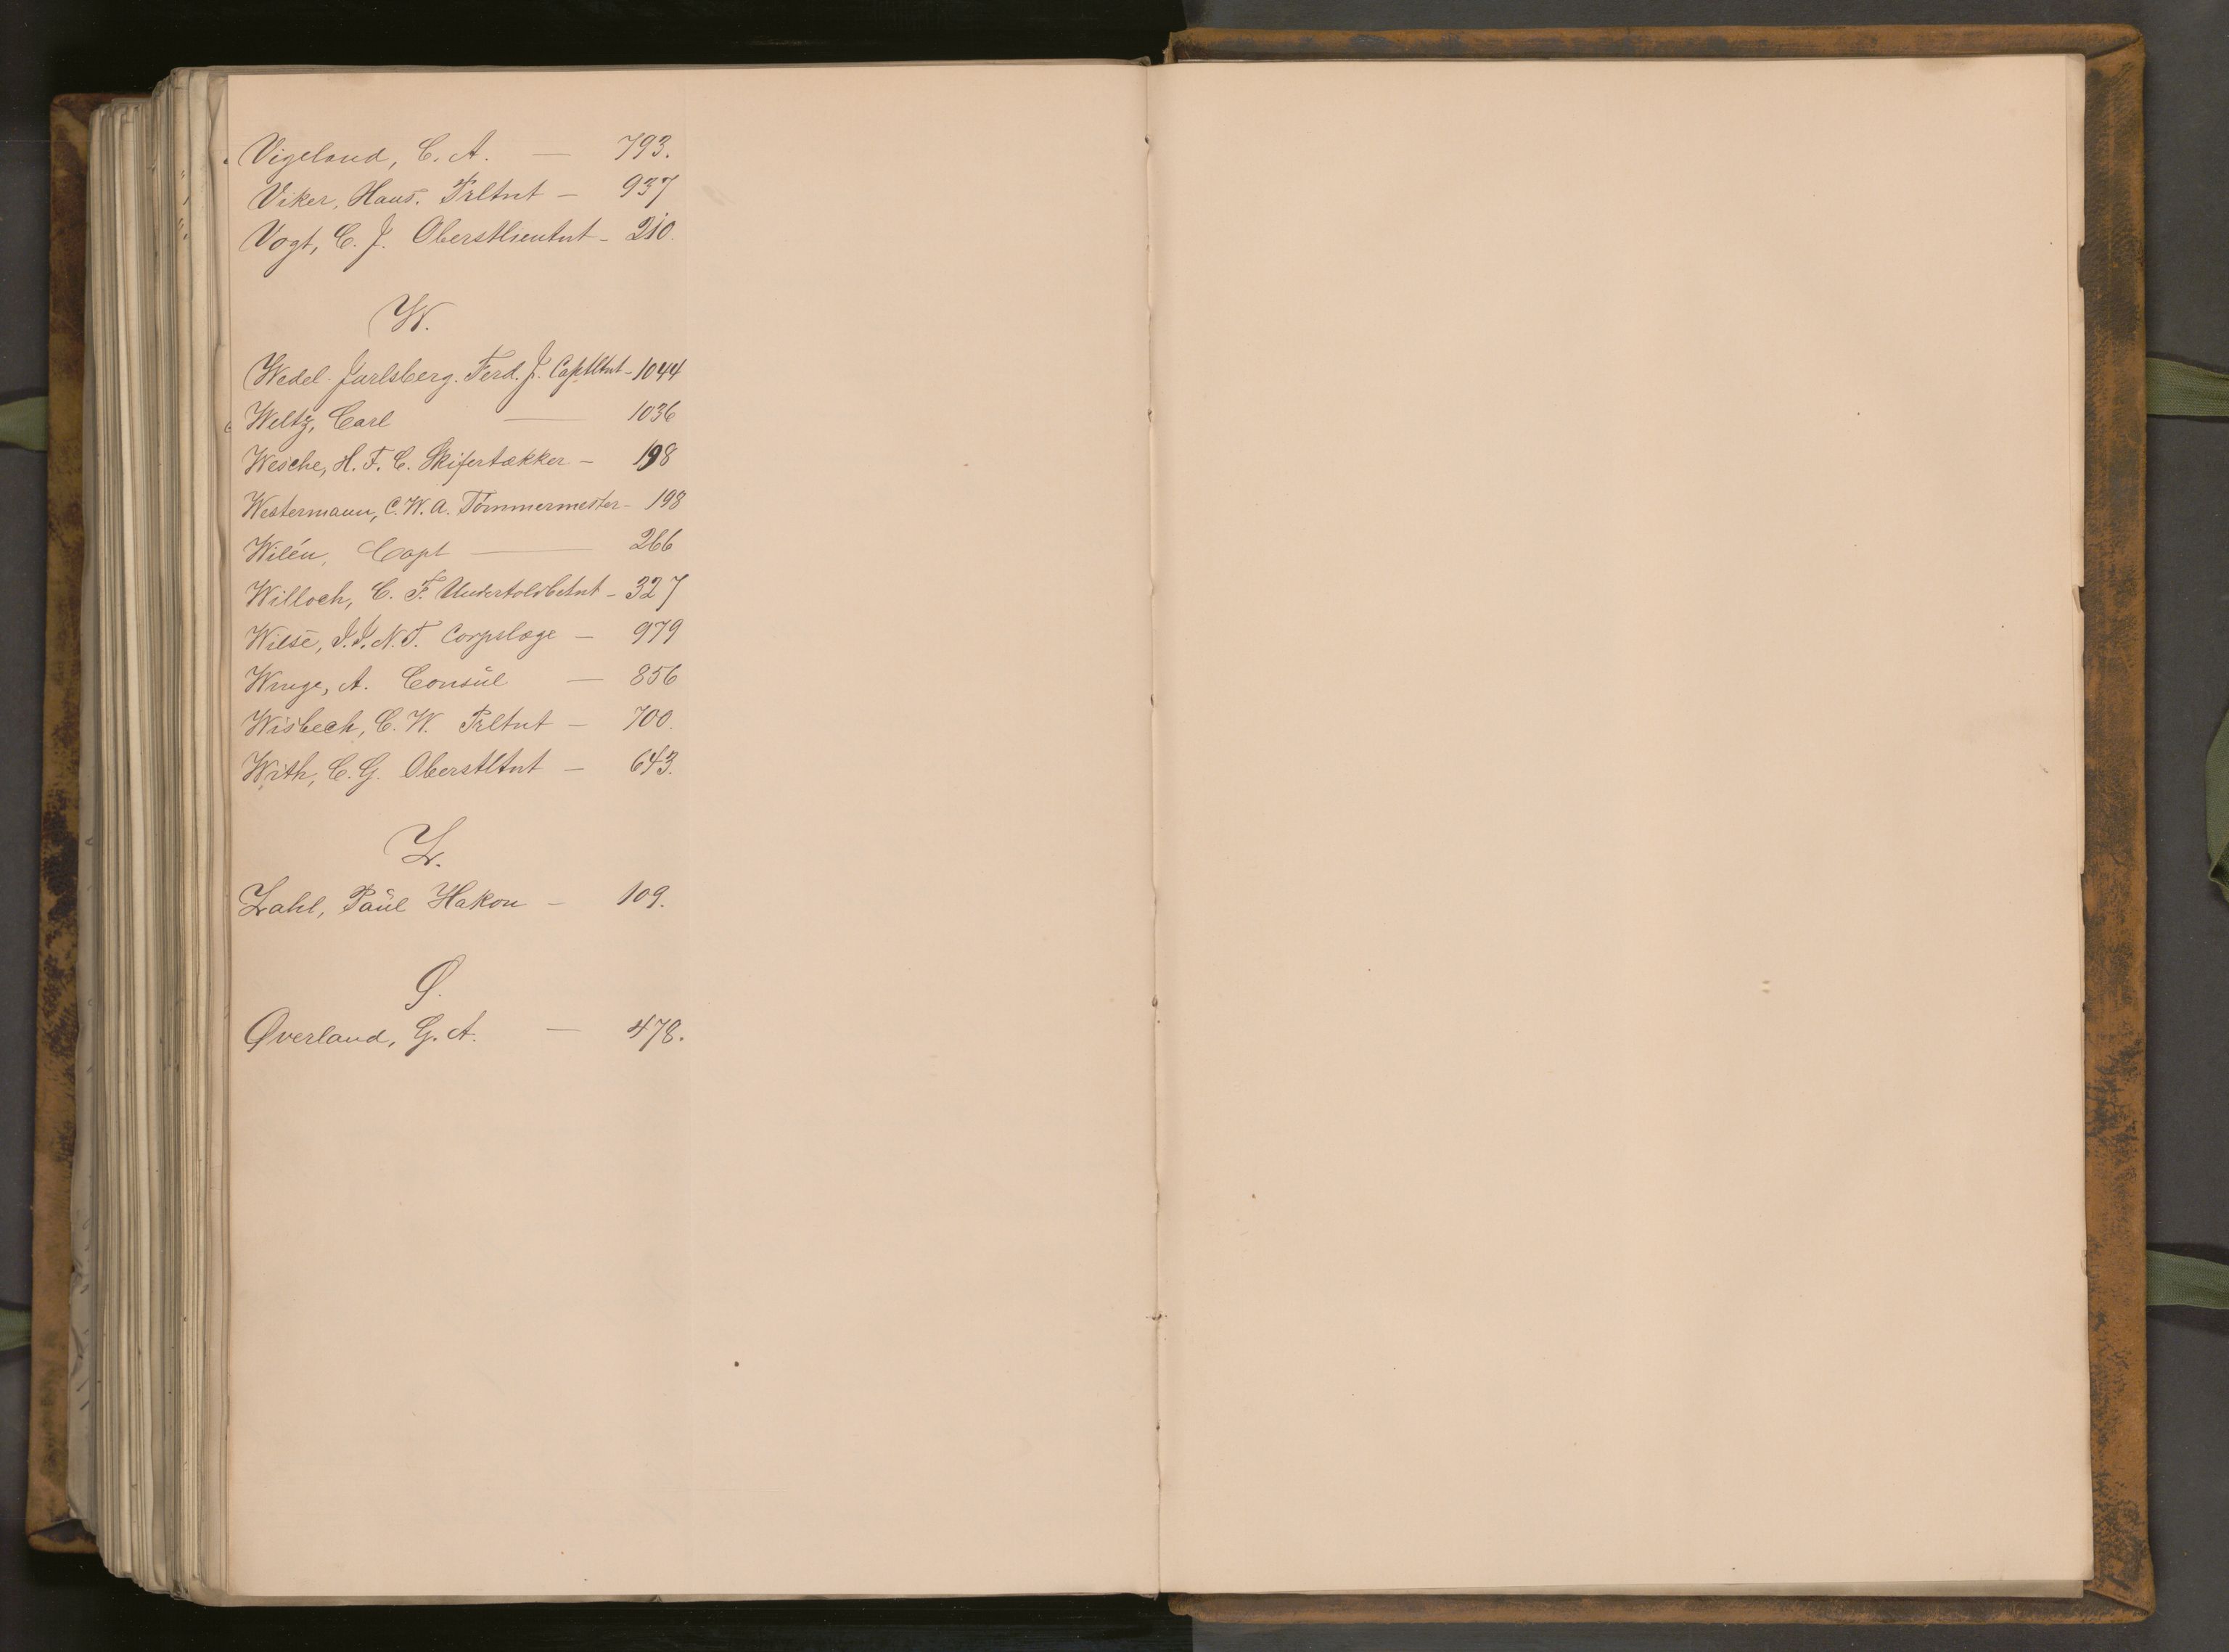 Vigeland, C. A. — 793.
Viker, Hans. Prltnt — 937
Vogt, C. J. Oberstlieutnt — 210.
W.
Wedel-Jarlsberg. Ferd. J. Captltnt — 1044
Weltz, Carl — 1036
Wesche, H. F. C. Skifertækker — 198
Westermann, C. W. A. Tømmermester — 198
Wilén, Capt — 266
Willoch, C. F. Undertoldbetnt — 327
Wilse, J. J. N. F. Corpslæge — 979
Winge, A. Consul — 856
Wisbech, C. W. Prltnt — 700.
With, C. G. Oberstltnt — 643.
Z.
Zahl, Paul Hakon — 109.
Ø.
Øverland, G. A. — 478.